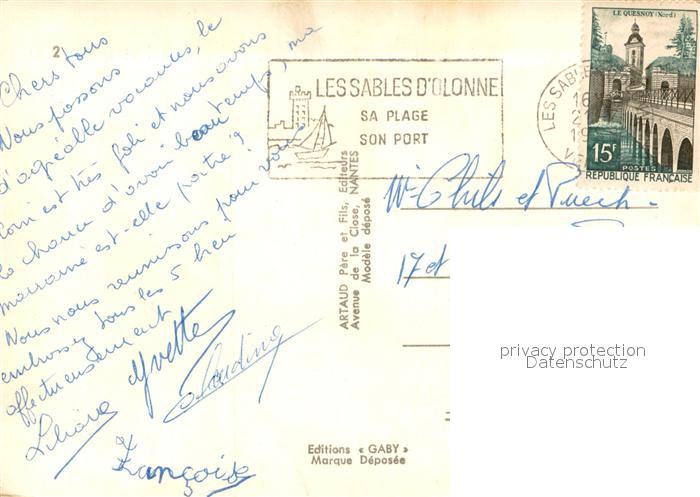 2
Chers tous
Nous passons
d'agréable vacances, le
coin est très joli et nous avons
la chance d'avoir beau temps, ma
marraine est-elle partie ?
Nous nous réunissons pour vous
embrasser tous les 5 bien
affectueusement
Liliane Yvette Claudine
Françoise
LES SABLES D'OLONNE
SA PLAGE
SON PORT
LES SABLE
LE QUESNOY (Nord)
15F
POSTES
REPUBLIQUE FRANÇAISE
ARTAUD Père et Fils, Editeurs
Avenue de la Close, NANTES
Modèle déposé
et
17 et
privacy protection
Datenschutz
Editions « GABY »
Marque Déposée